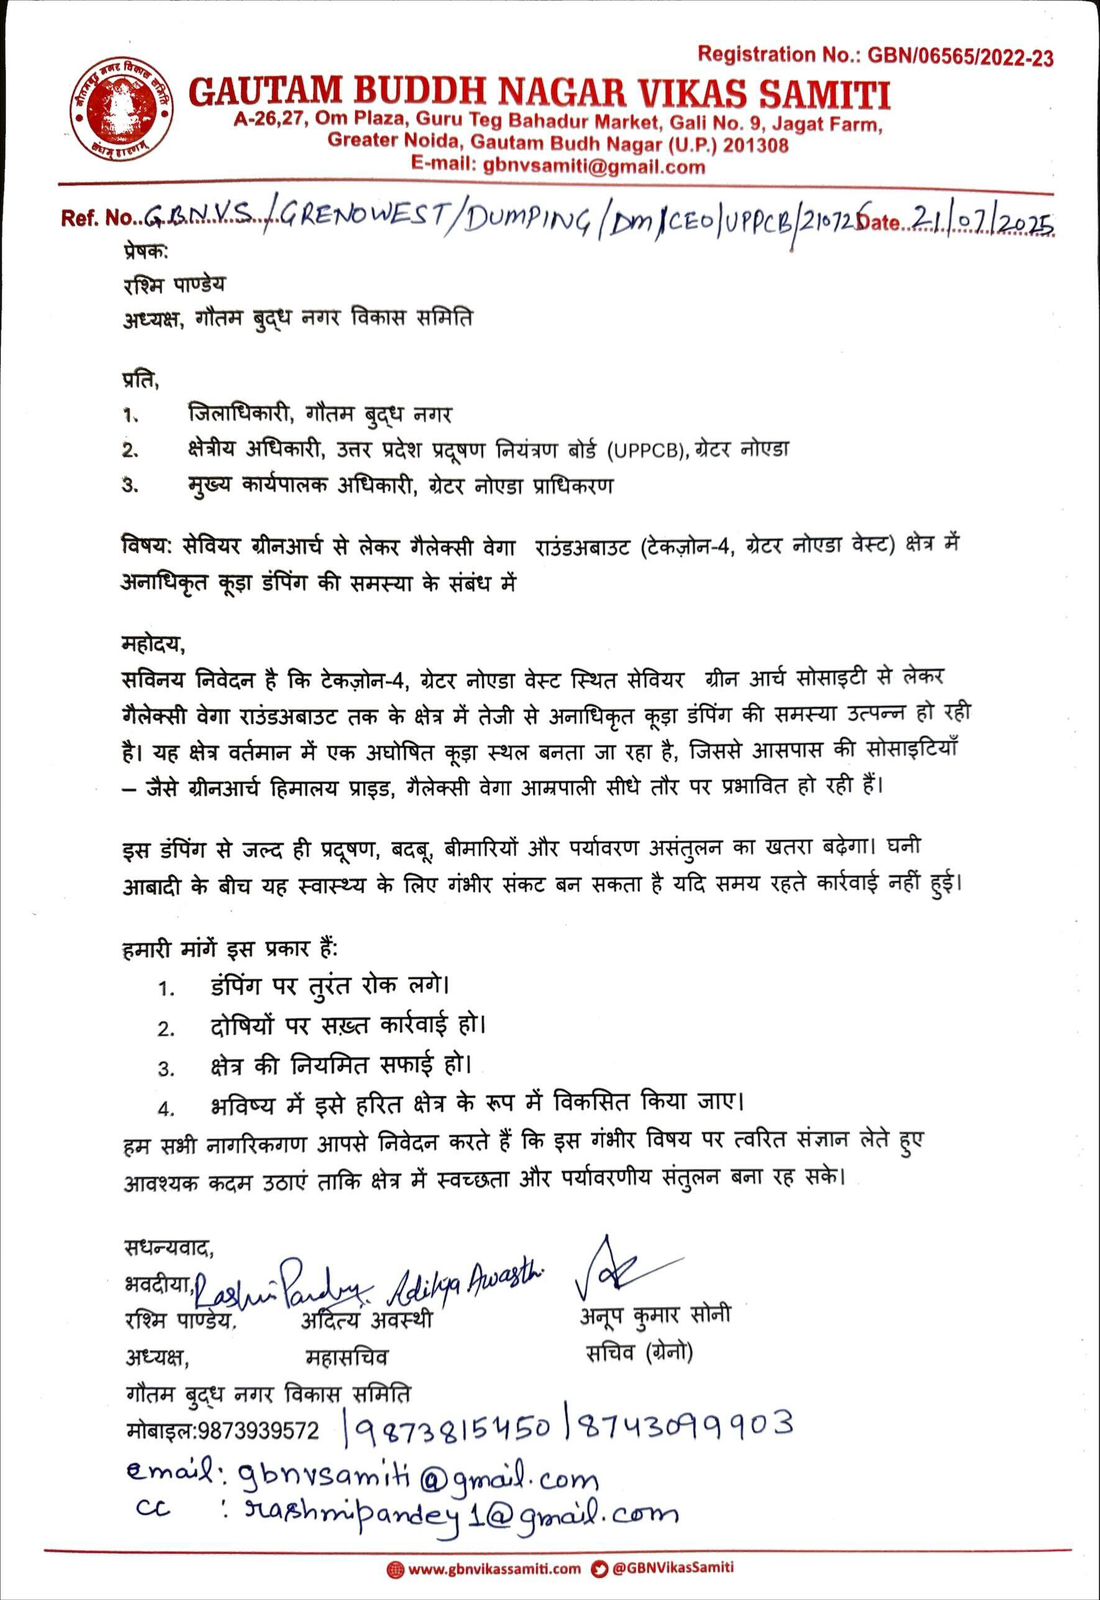 Registration No.: GBN/06565/2022-23
गौतमबुद्ध नगर विकास समिति
GAUTAM BUDDH NAGAR VIKAS SAMITI
A-26,27, Om Plaza, Guru Teg Bahadur Market, Gali No. 9, Jagat Farm,
Greater Noida, Gautam Budh Nagar (U.P.) 201308
E-mail: gbnvsamiti@gmail.com
Ref. No. GBNVS/GRENOWEST/DUMPING/DM/CEO/UPPCB/210725 Date. 21/07/2025
प्रेषक:
रश्मि पाण्डेय
अध्यक्ष, गौतम बुद्ध नगर विकास समिति
प्रति,
1. जिलाधिकारी, गौतम बुद्ध नगर
2. क्षेत्रीय अधिकारी, उत्तर प्रदेश प्रदूषण नियंत्रण बोर्ड (UPPCB), ग्रेटर नोएडा
3. मुख्य कार्यपालक अधिकारी, ग्रेटर नोएडा प्राधिकरण
विषय: सेवियर ग्रीनआर्च से लेकर गैलेक्सी वेगा राउंडअबाउट (टेकज़ोन-4, ग्रेटर नोएडा वेस्ट) क्षेत्र में
अनाधिकृत कूड़ा डंपिंग की समस्या के संबंध में
महोदय,
सविनय निवेदन है कि टेकज़ोन-4, ग्रेटर नोएडा वेस्ट स्थित सेवियर ग्रीन आर्च सोसाइटी से लेकर
गैलेक्सी वेगा राउंडअबाउट तक के क्षेत्र में तेजी से अनाधिकृत कूड़ा डंपिंग की समस्या उत्पन्न हो रही
है। यह क्षेत्र वर्तमान में एक अघोषित कूड़ा स्थल बनता जा रहा है, जिससे आसपास की सोसाइटियाँ
– जैसे ग्रीनआर्च हिमालय प्राइड, गैलेक्सी वेगा आम्रपाली सीधे तौर पर प्रभावित हो रही हैं।
इस डंपिंग से जल्द ही प्रदूषण, बदबू, बीमारियों और पर्यावरण असंतुलन का खतरा बढ़ेगा। घनी
आबादी के बीच यह स्वास्थ्य के लिए गंभीर संकट बन सकता है यदि समय रहते कार्रवाई नहीं हुई।
हमारी मांगें इस प्रकार हैं:
1. डंपिंग पर तुरंत रोक लगे।
2. दोषियों पर सख़्त कार्रवाई हो।
3. क्षेत्र की नियमित सफाई हो।
4. भविष्य में इसे हरित क्षेत्र के रूप में विकसित किया जाए।
हम सभी नागरिकगण आपसे निवेदन करते हैं कि इस गंभीर विषय पर त्वरित संज्ञान लेते हुए
आवश्यक कदम उठाएं ताकि क्षेत्र में स्वच्छता और पर्यावरणीय संतुलन बना रह सके।
सधन्यवाद,
भवदीया, Rashmi Pandey Aditya Awasthi
रश्मि पाण्डेय. अदित्य अवस्थी अनूप कुमार सोनी
अध्यक्ष, महासचिव सचिव (ग्रेनो)
गौतम बुद्ध नगर विकास समिति
मोबाइल:9873939572 |9873815450|8743099903
email: gbnvsamiti@gmail.com
cc : rashmipandey1@gmail.com
www.gbnvikassamiti.com @GBNVikasSamiti